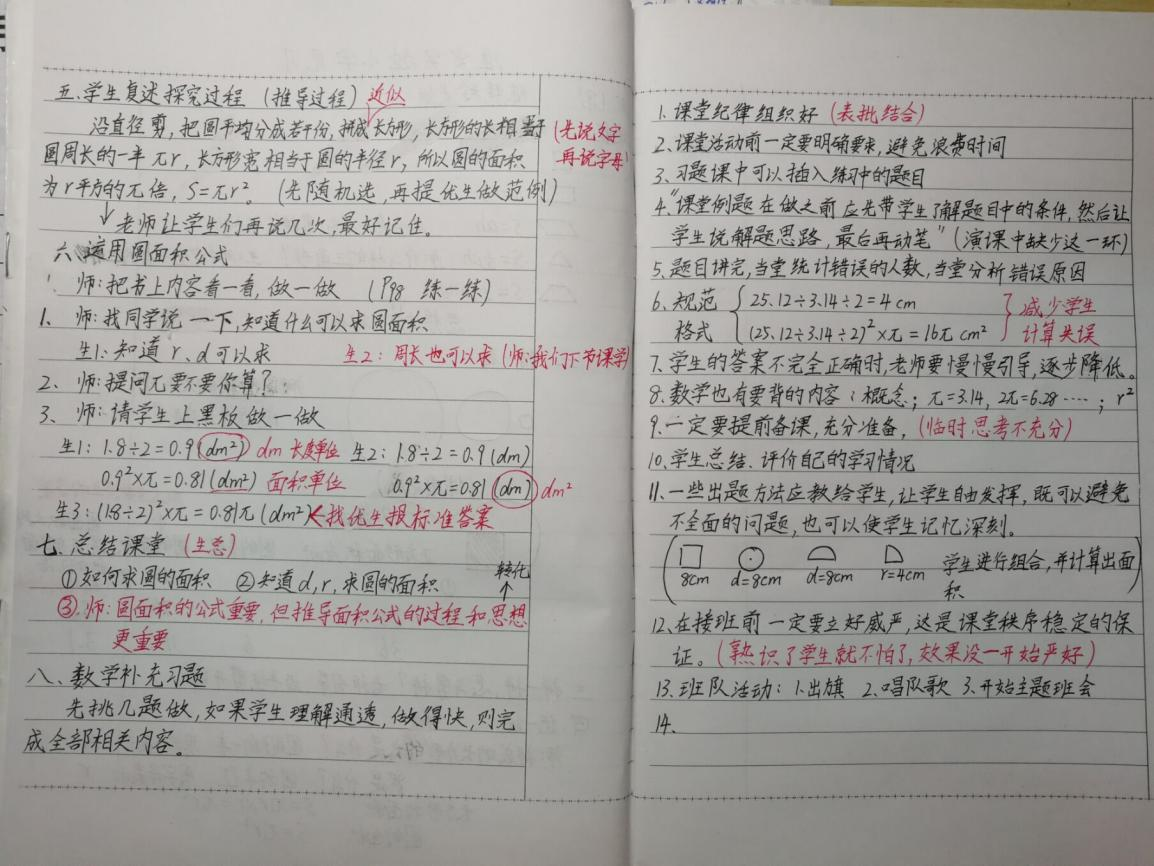 五、学生复述探究过程 (推导过程) 近似
沿直径剪,把圆平均分成若干份,拼成长方形,长方形的长相当于 (先说文字
圆周长的一半πr,长方形宽相当于圆的半径r,所以圆的面积 再说字母)
为r平方的π倍,S=πr²。(先随机选,再提优生做范例)
↓老师让学生们再说几次,最好记住。
六、运用圆面积公式
师:把书上内容看一看,做一做 (P98 练一练)
1、师:找同学说一下,知道什么可以求圆面积
生1:知道r、d可以求 生2:周长也可以求(师:我们下节课学)
2、师:提问π要不要你算?
3、师:请学生上黑板做一做
生1:1.8÷2=0.9(dm²) dm 长度单位 生2:1.8÷2=0.9(dm)
0.9²×π=0.81(dm²) 面积单位 0.9²×π=0.81(dm) dm²
生3:(1.8÷2)²×π=0.81π(dm²)<找优生报标准答案
七、总结课堂 (生总)
①如何求圆的面积 ②知道d,r,求圆的面积 转化
③.师:圆面积的公式重要,但推导面积公式的过程和思想
更重要
八、数学补充习题
先挑几题做,如果学生理解通透,做得快,则完
成全部相关内容。
1.课堂纪律组织好 (表批结合)
2.课堂活动前一定要明确要求,避免浪费时间
3.习题课中可以插入练习中的题目
4."课堂例题在做之前应先带学生了解题目中的条件,然后让
学生说解题思路,最后再动笔"(演课中缺少这一环)
5.题目讲完,当堂统计错误的人数,当堂分析错误原因
6.规范 { 25.12÷3.14÷2=4cm } 减少学生
格式 (25.12÷3.14÷2)²×π=16πcm² 计算失误
7.学生的答案不完全正确时,老师要慢慢引导,逐步降低。
8.数学也有要背的内容:概念;π=3.14,2π=6.28……;r²
9.一定要提前备课,充分准备,(临时思考不充分)
10.学生总结、评价自己的学习情况
11.一些出题方法应教给学生,让学生自由发挥,既可以避免
不全面的问题,也可以使学生记忆深刻。
(8cm d=8cm d=8cm r=4cm 学生进行组合,并计算出面
积)
12.在接班前一定要立好威严,这是课堂秩序稳定的保
证。(熟识了学生就不怕了,效果没一开始严好)
13.班队活动:1.出旗 2.唱队歌 3.开始主题班会
14.